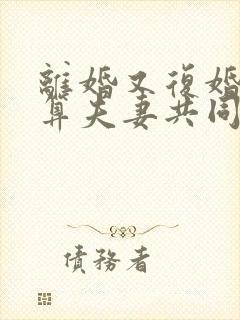 離婚又復婚
算夫妻共同
債務者